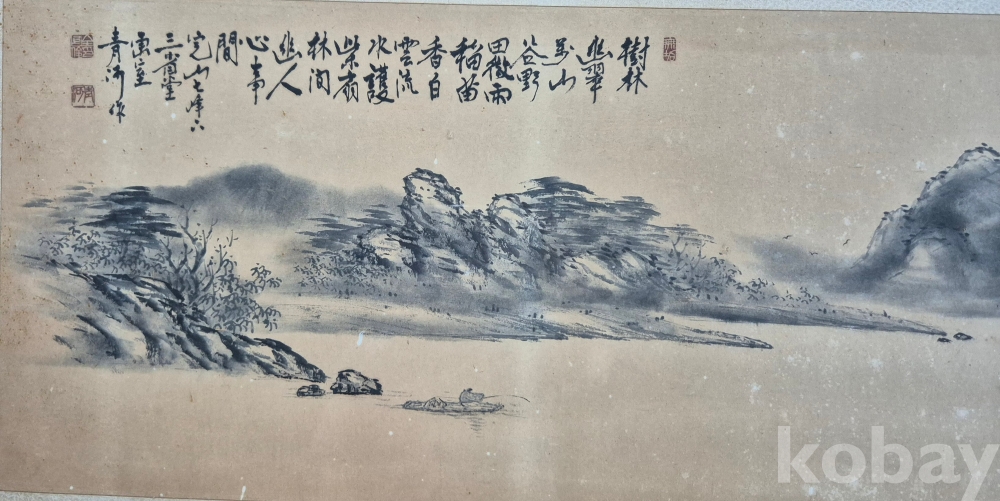 樹林
幽翠
滿山
谷野
田微雨
稻苗
香白
雲流
水護
柴扉
林间
幽人
心事
間
完山七峰下
三省堂
畫室
青河作
kobay